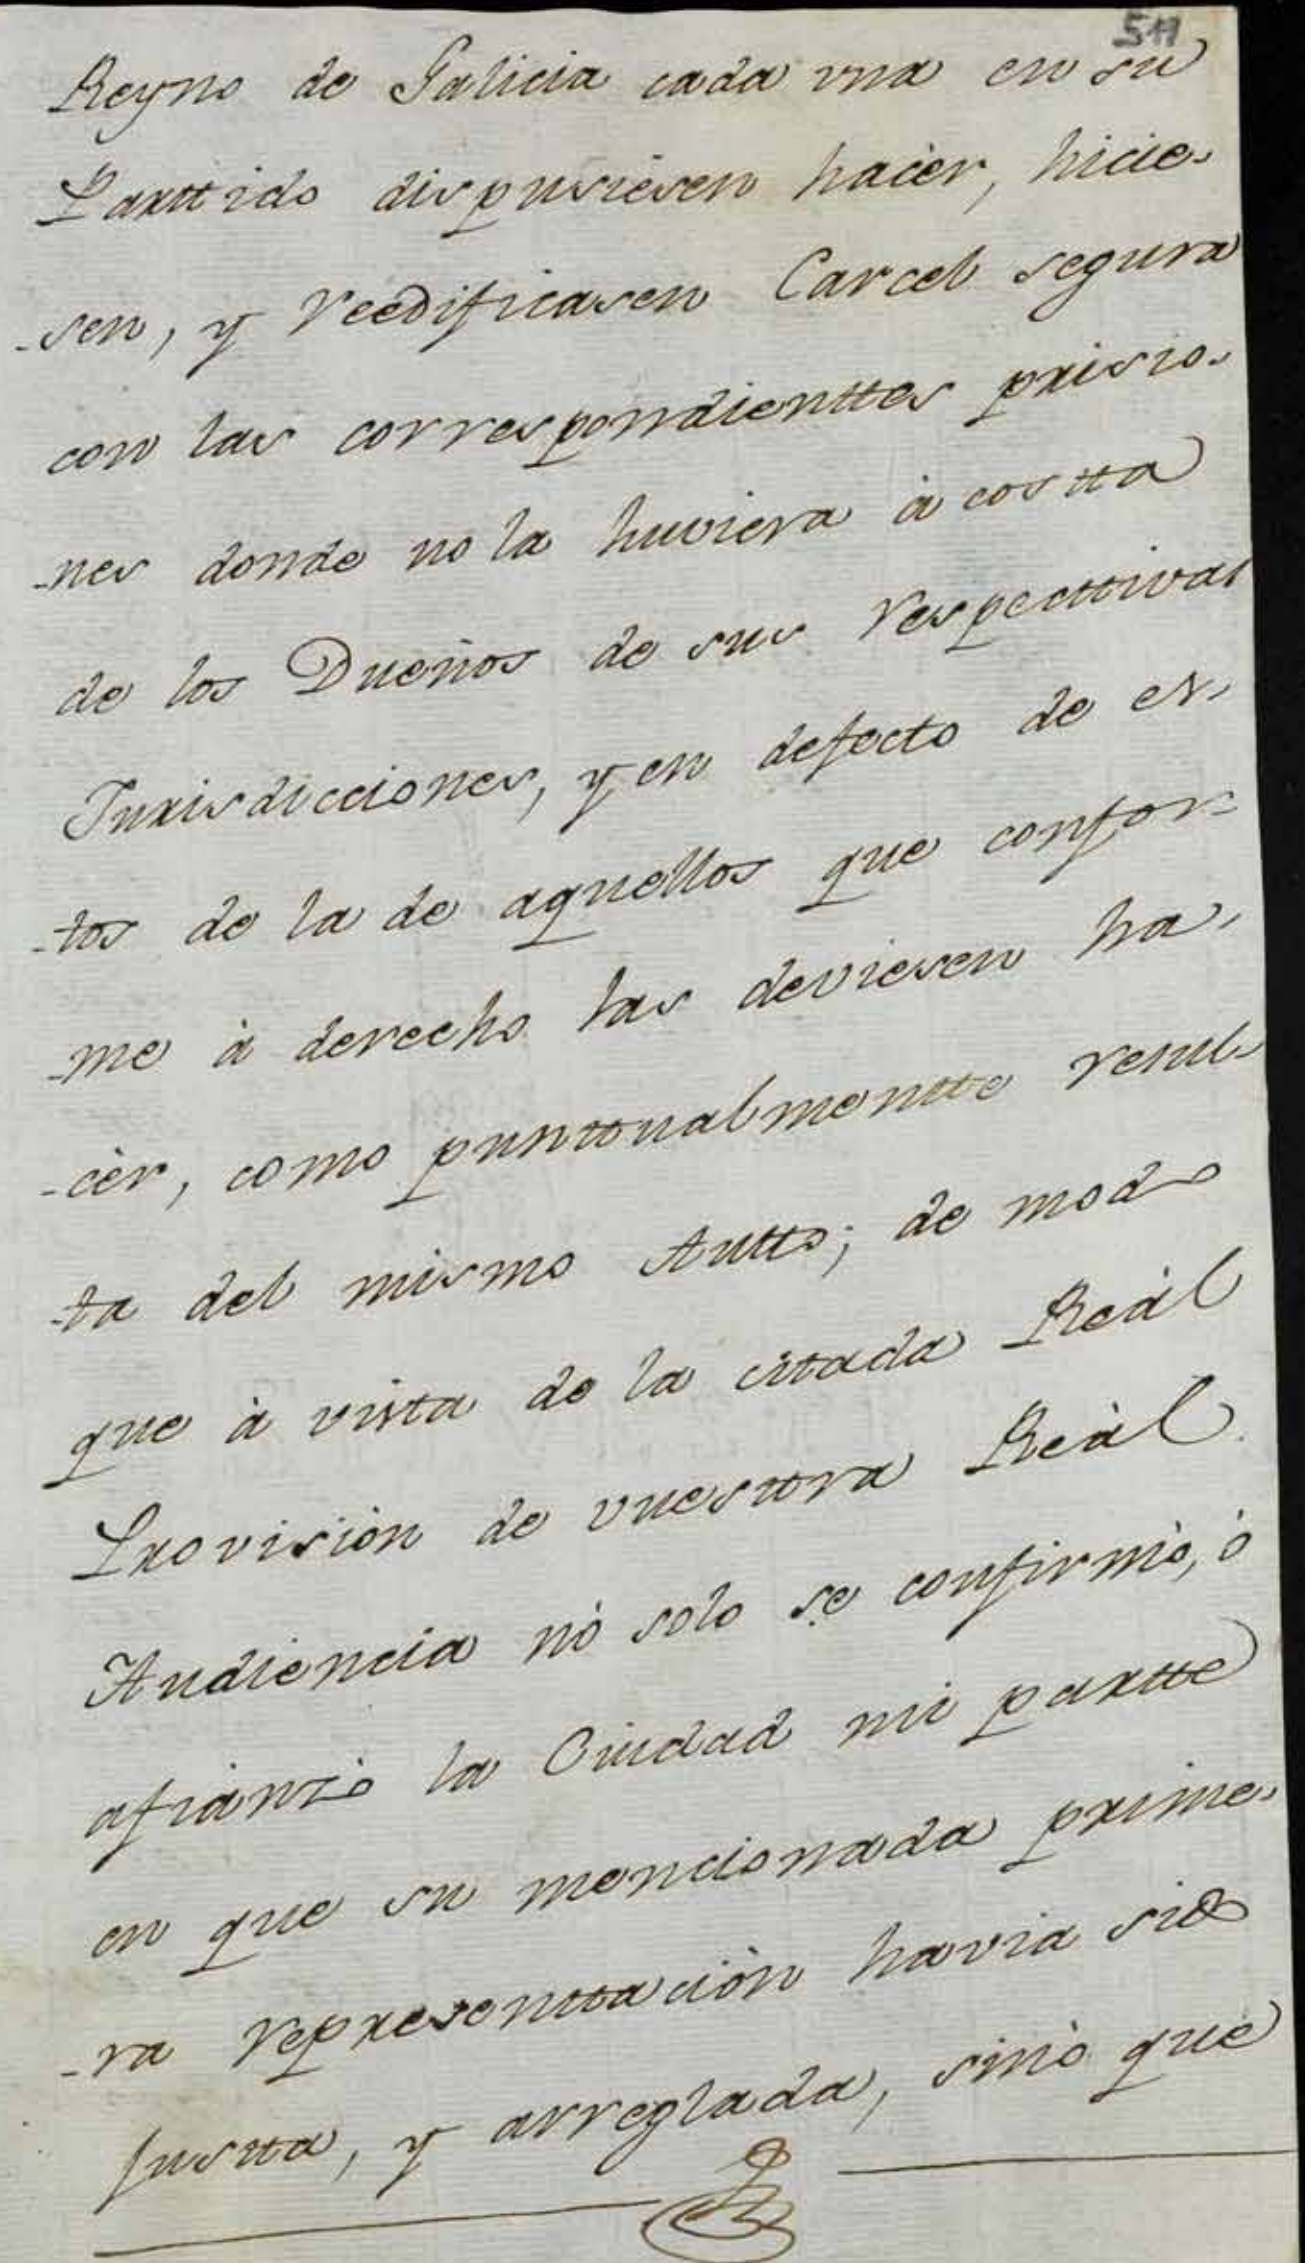 Reyno de Galicia cada vna en su
Parttido dispusiesen hacèr, hicie-
-sen, y reedificasen Carcel segura
con las correspondienttes prisio-
-nes donde no la huviera à costta
de los Dueños de sus respecttivas
Jurisdicciones, y en defecto de es-
-tos de la de aquellos que confor-
-me à derecho las deviesen ha-
-cèr, como punttualmentte resul-
-ta del mismo Autto; de modo
que à vista de la cittada Reàl
Provisiòn de vuesttra Reàl
Audiencia nò solo se confirmò, ò
afianzò la Ciudad mi partte
en que su mencionada prime-
-ra representtaciòn havia sido
justta, y arreglada, sinò que